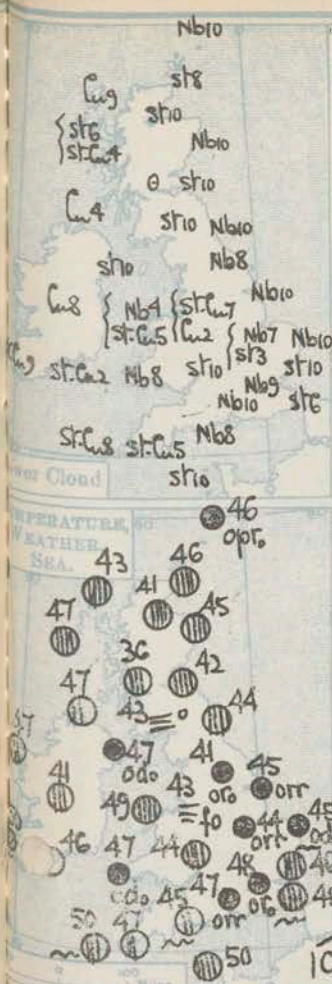 Nb10
Cu9 St8
St10
{ St6
{ St.Cu4 Nb10
θ St10
Cu4 St10 Nb10
St10 Nb8
Cu8 { Nb4 { St.Cu7 Nb10
{ St.Cu5 { Cu2 { Nb7 Nb10
Cu9 { St3
St.Cu2 Nb8 St10 St10
Nb9
Nb10 St6
St.Cu8 St.Cu5 Nb8
St10
Lower Cloud
46
opr₀
TEMPERATURE,
WEATHER
SEA.
43 41 46
47 45
36 42
47 43 ≡° 44
47
47 41 45
odo or₀ orr
41 49 43 45
≡fo 44
orr
46 47 44
48 46
cdo 45 47 or₀
orr
50 47
50